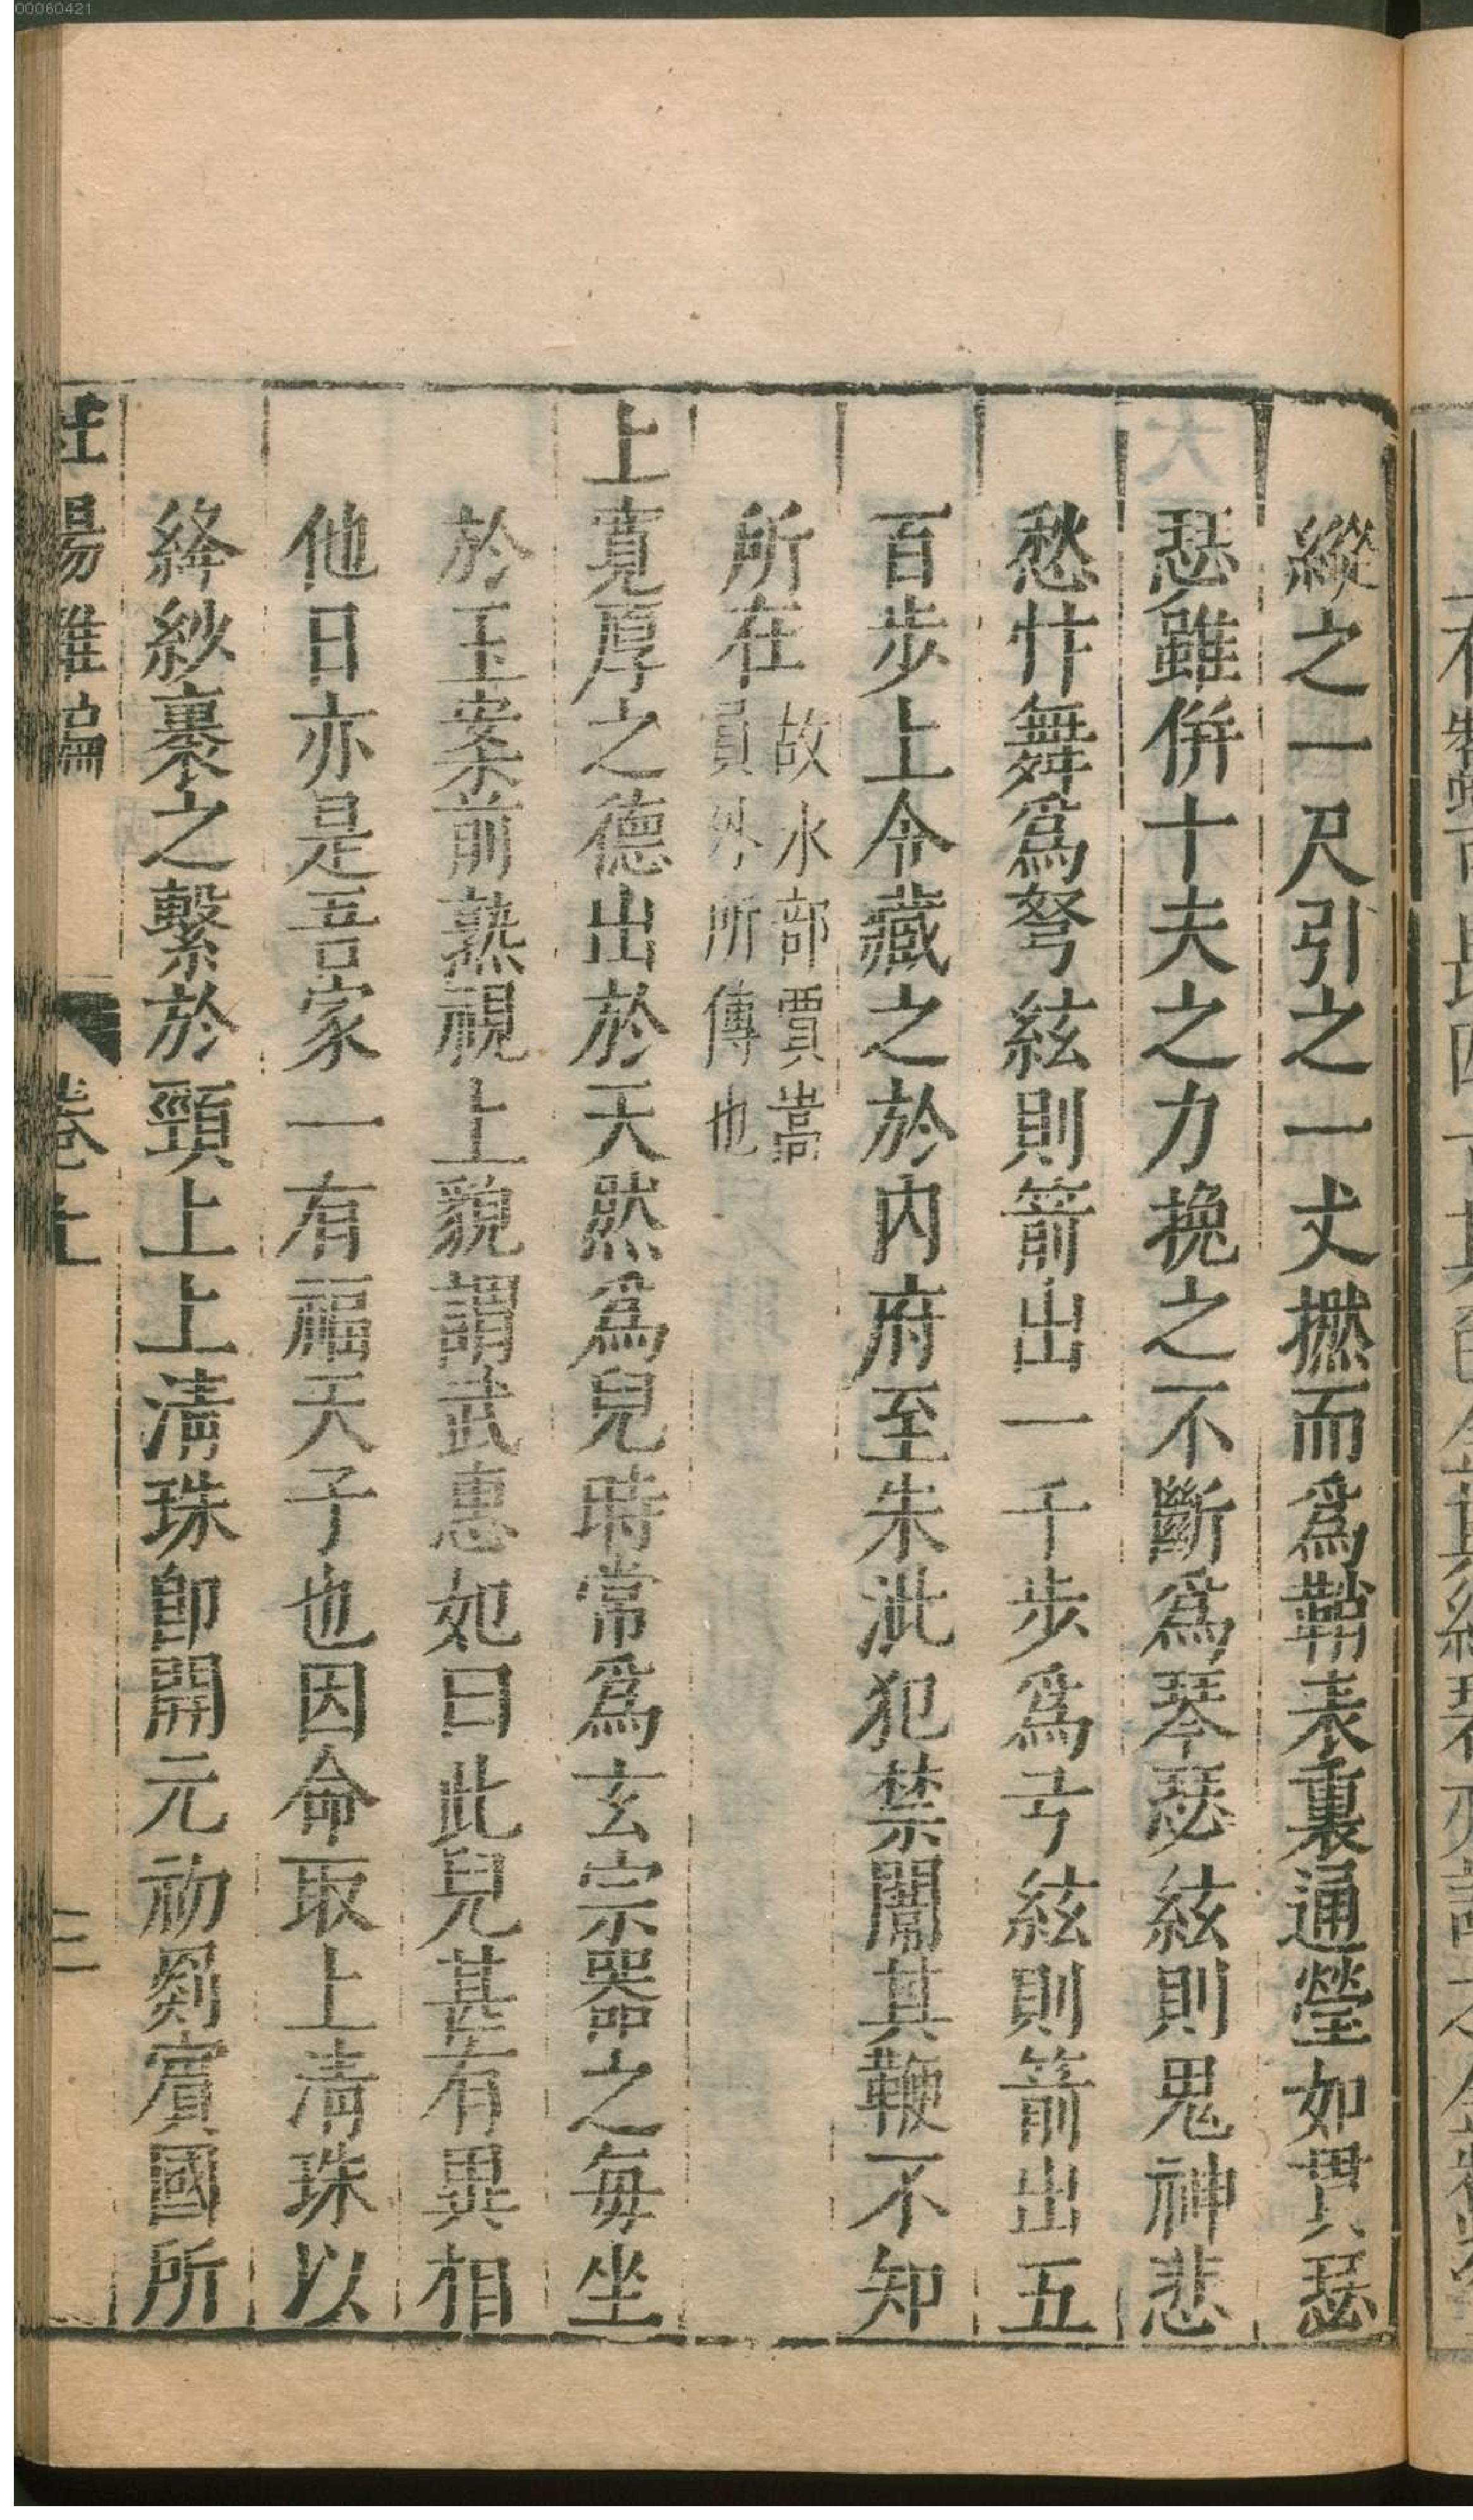 00060421
縱之一尺引之一丈撚而爲鞘表裏通瑩如貫瑟
瑟雖併十夫之力挽之不斷爲琴瑟絃則鬼神悲
愁忭舞爲弩絃則箭出一千步爲弓絃則箭出五
百步上令藏之於内府至朱泚犯禁闈其鞭不知
所在故水部賈嵩
員外所傳也
上寬厚之德出於天然爲兒時常爲玄宗器之每坐
於玉案前熟視上貌謂武惠妃曰此兒甚有異相
他日亦是吾家一有福天子也因命取上清珠以
絳紗裹之繫於頸上上清珠卽開元初罽賓國所
杜陽雜編 卷上 三